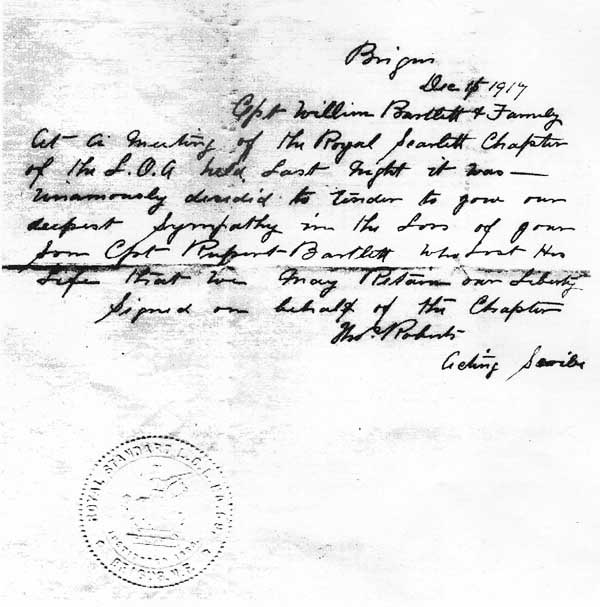 Brigus
Dec 15 1917
Cpt William Bartlett & Family
At a Meeting of the Royal Scarlett Chapter
of the L.O.A held Last Night it was —
unamously decided to tender to your our
deepest Sympathy in the Loss of your
Son Cpt Rupert Bartlett who Lost His
Life that we May Retain our Liberty
Signed on behalf of the Chapter
Thos Roberts
Acting Scribe
ROYAL STANDARD L.O.L.
BRIGUS, N.F.